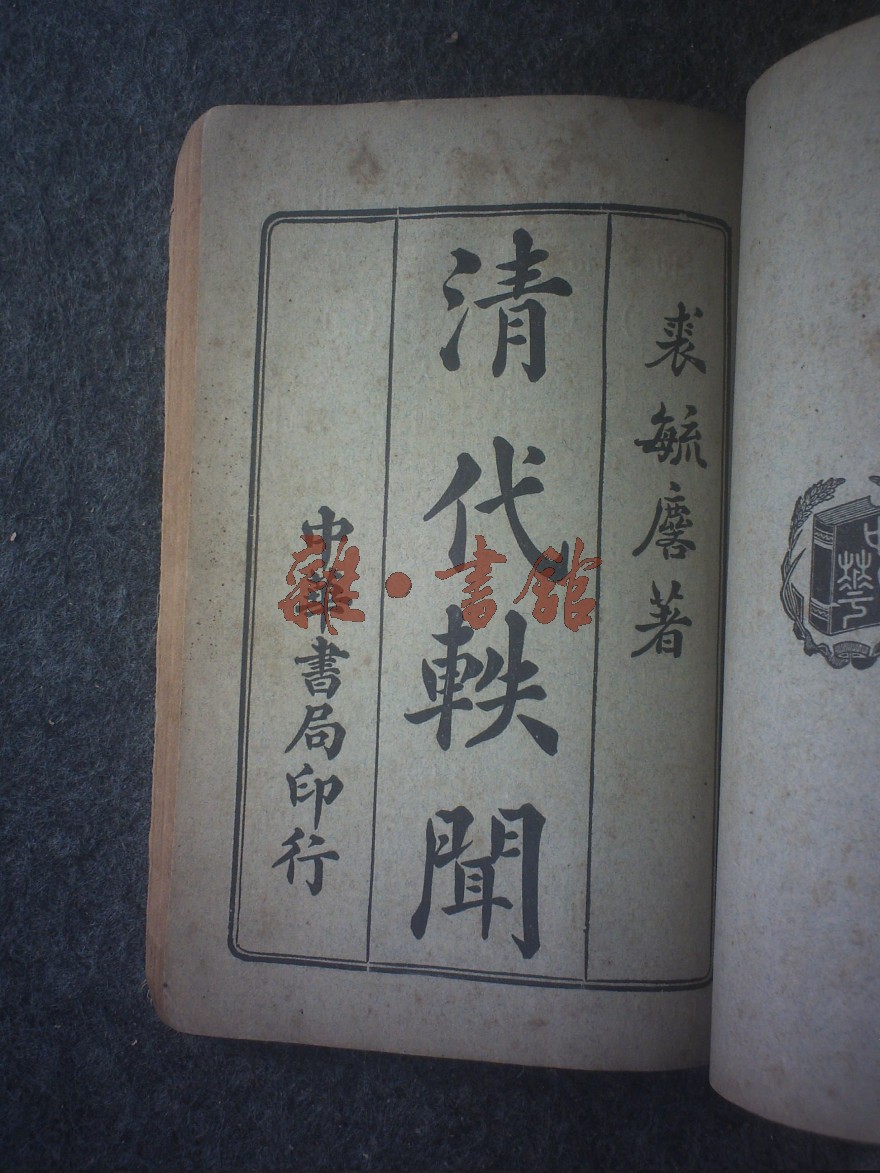 中華
裘毓麐著
清代軼聞
中華書局印行
雜·書館